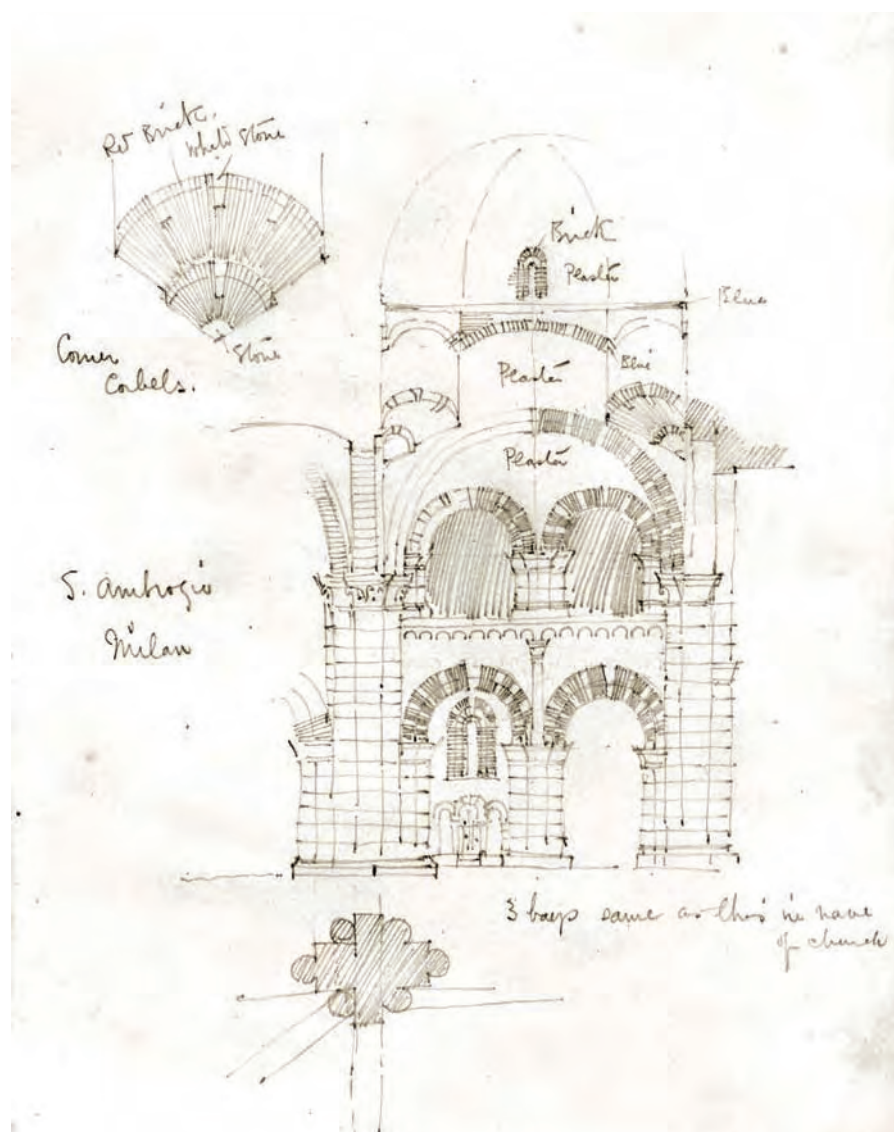 Red Brick.
White Stone
Stone
Corner
Corbels.
Brick
Plaster
Blue
Plaster
Blue
Plaster
S. Ambrogio
Milan
3 bays same as this in nave
of church